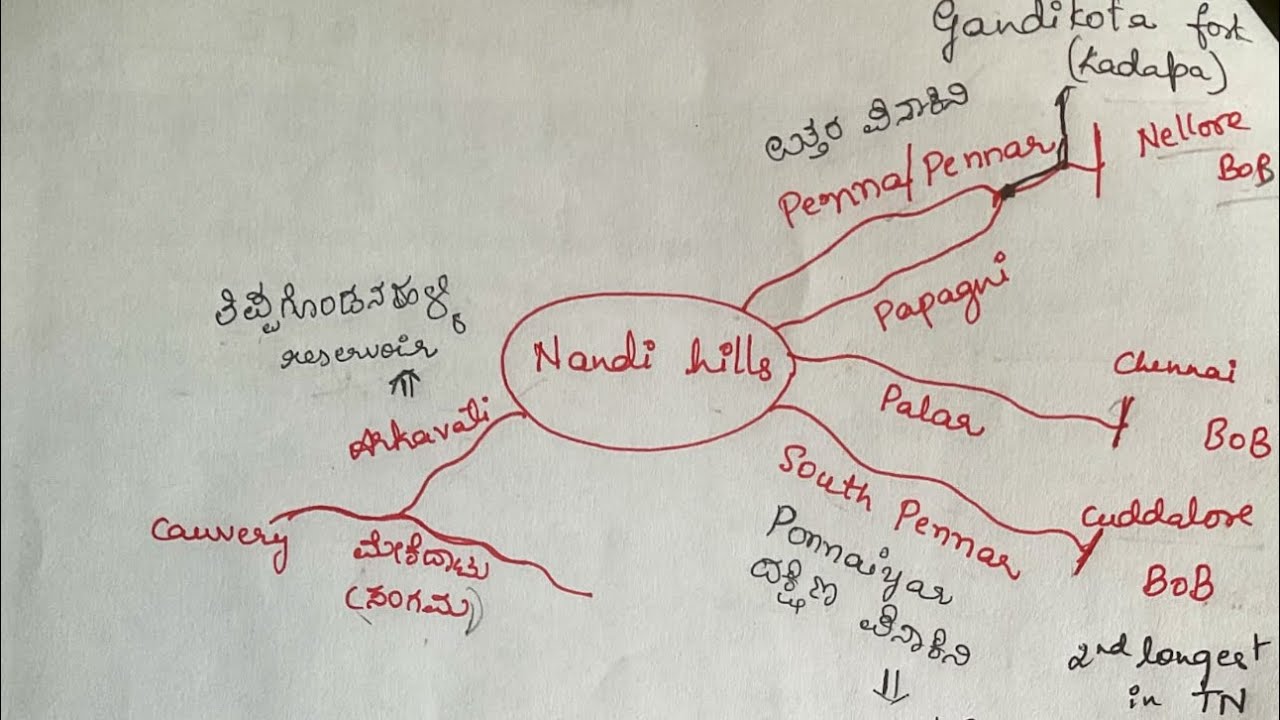 Gandikota fort
(Kadapa)
ಉತ್ತರ ಪಿನಾಕಿನಿ
Penna/Pennar
Nellore
BoB
Papagni
ತಿಪ್ಪಗೊಂಡನಹಳ್ಳಿ
reservoir
⇑
Nandi hills
Chennai
Palar
BoB
Arkavati
South Pennar
Cuddalore
Cauvery
ಮೇಕೆದಾಟು
(ಸಂಗಮ)
Ponnaiyar
ದಕ್ಷಿಣ ಪಿನಾಕಿನಿ
BoB
⇓
2nd longest
in TN